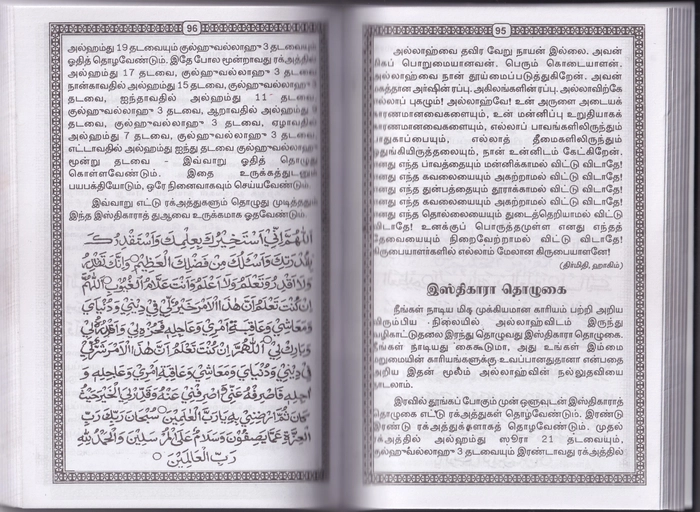 96
அல்ஹம்து 19 தடவையும் குல்ஹுவல்லாஹு 3 தடவையும்
ஓதித் தொழவேண்டும். இதே போல மூன்றாவது ரக்அத்தில்
அல்ஹம்து 17 தடவை, குல்ஹுவல்லாஹு 3 தடவை
நான்காவதில் அல்ஹம்து 15 தடவை, குல்ஹுவல்லாஹு 3
தடவை, ஐந்தாவதில் அல்ஹம்து 11 தடவை,
குல்ஹுவல்லாஹு 3 தடவை, ஆறாவதில் அல்ஹம்து
தடவை, குல்ஹுவல்லாஹு 3 தடவை, ஏழாவதில்
அல்ஹம்து 7 தடவை, குல்ஹுவல்லாஹு 3 தடவை,
எட்டாவதில் அல்ஹம்து ஐந்து தடவை குல்ஹுவல்லாஹு
மூன்று தடவை - இவ்வாறு ஓதித் தொழுது
கொள்ளவேண்டும். இதை உருக்கத்துடனும்
பயபக்தியோடும், ஒரே நினைவாகவும் செய்யவேண்டும்.
இவ்வாறு எட்டு ரக்அத்துகளும் தொழுது முடித்ததும்
இந்த இஸ்திகாராத் துஆவை உருக்கமாக ஓதவேண்டும்.
اَللّٰهُمَّ اِنِّيْ اَسْتَخِيْرُكَ بِعِلْمِكَ وَاَسْتَقْدِرُكَ
بِقُدْرَتِكَ وَاَسْئَلُكَ مِنْ فَضْلِكَ الْعَظِيْمِ وَاِنَّكَ تَقْدِرُ
وَلَا اَقْدِرُ وَتَعْلَمُ وَلَا اَعْلَمُ وَاَنْتَ عَلَّامُ الْغُيُوْبِ اَللّٰهُمَّ
اِنْ كُنْتَ تَعْلَمُ اَنَّ هٰذَا الْاَمْرَ خَيْرٌ لِّيْ فِيْ دِيْنِيْ وَدُنْيَايَ
وَمَعَاشِيْ وَعَاقِبَةِ اَمْرِيْ وَعَاجِلِهٖ فَ وَاقْدُرْ لِيْ
وَبَارِكْ لِيْ اَللّٰهُمَّ اِنْ كُنْتَ تَعْلَمُ اَنَّ هٰذَا الْاَمْرَ شَرٌّ لِّيْ
فِيْ دِيْنِيْ وَدُنْيَايَ وَمَعَاشِيْ وَعَاقِبَةِ اَمْرِيْ وَعَاجِلِهٖ وَ
اٰجِلِهٖ فَاصْرِفْهُ عَنِّيْ اِصْرِفْنِيْ عَنْهُ وَقَدِّرْ لِيَ الْخَيْرَ حَيْثُ
كَانَ ثُمَّ ارْضِنِيْ بِهٖ يَارَبَّ الْعٰلَمِيْنَ سُبْحَانَ رَبِّكَ رَبِّ
الْعِزَّةِ عَمَّا يَصِفُوْنَ وَسَلَامٌ عَلَى الْمُرْسَلِيْنَ وَالْحَمْدُ لِلّٰهِ
رَبِّ الْعَالَمِيْنَ
95
அல்லாஹ்வை தவிர வேறு நாயன் இல்லை. அவன்
மிகப் பொறுமையானவன். பெரும் கொடையாளன்.
அல்லாஹ்வை நான் தூய்மைப்படுத்துகிறேன். அவன்
மகத்தான அர்ஷின் ரப்பு. அகிலங்களின் ரப்பு. அல்லாவிற்கே
எல்லாப் புகழும்! அல்லாஹ்வே! உன் அருளை அடையக்
காரணமானவைகளையும், உன் மன்னிப்பு உறுதியாகக்
காரணமானவைகளையும், எல்லாப் பாவங்களிலிருந்தும்
பாதுகாப்பையும், எல்லாத் தீமைகளிலிருந்தும்
ஒதுங்கியிருத்தலையும், நான் உன்னிடம் கேட்கிறேன்.
எனது எந்த பாவத்தையும் மன்னிக்காமல் விட்டு விடாதே!
எனது எந்த கவலையையும் அகற்றாமல் விட்டு விடாதே!
எனது எந்த துன்பத்தையும் தூராக்காமல் விட்டு விடாதே!
எனது எந்த கவலையையும் அகற்றாமல் விட்டு விடாதே!
எனது எந்த தொல்லையையும் துடைத்தெறியாமல் விட்டு
விடாதே! உனக்குப் பொருத்தமுள்ள எனது எந்தத்
தேவையையும் நிறைவேற்றாமல் விட்டு விடாதே!
கிருபையாளர்களில் எல்லாம் மேலான கிருபையாளனே!
(திர்மிதி, ஹாகிம்)
இஸ்திகாரா தொழுகை
நீங்கள் நாடிய மிக முக்கியமான காரியம் பற்றி அறிய
விரும்பிய நிலையில் அல்லாஹ்விடம் இருந்து
வழிகாட்டுதலை இரந்து தொழுவது இஸ்திகாரா தொழுகை.
நீங்கள் நாடியது கைகூடுமா, அது உங்கள் இம்மை
மறுமையின் காரியங்களுக்கு உவப்பானதுதானா என்பதை
அறிய இதன் மூலம் அல்லாஹ்வின் நல்லுதவியை
நாடலாம்.
இரவில் தூங்கப் போகும் முன் ஒளுவுடன் இஸ்திகாராத்
தொழுகை எட்டு ரக்அத்துகள் தொழவேண்டும். இரண்டு
இரண்டு ரக்அத்துக்களாகத் தொழவேண்டும். முதல்
ரக்அத்தில் அல்ஹம்து ஸூரா 21 தடவையும்,
குல்ஹுவல்லாஹு 3 தடவையும் இரண்டாவது ரக்அத்தில்